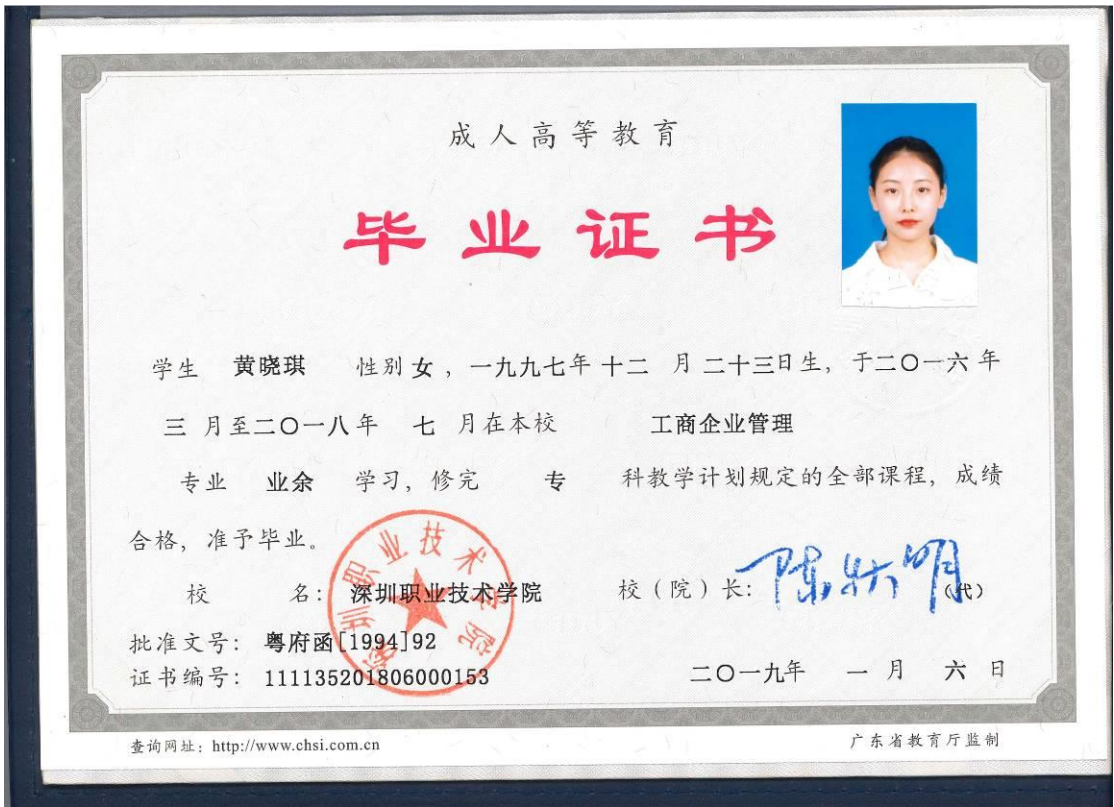 成人高等教育
毕业证书
学生 黄晓琪 性别 女 ,一九九七年 十二 月 二十三日生, 于二〇一六年
三 月至二〇一八年 七 月在本校 工商企业管理
专业 业余 学习, 修完 专 科教学计划规定的全部课程, 成绩
合格, 准予毕业。
深圳职业技术学院
校 名: 深圳职业技术学院 校(院)长: (代)
批准文号: 粤府函[1994]92
证书编号: 111135201806000153 二〇一九年 一 月 六 日
查询网址: http://www.chsi.com.cn 广东省教育厅监制